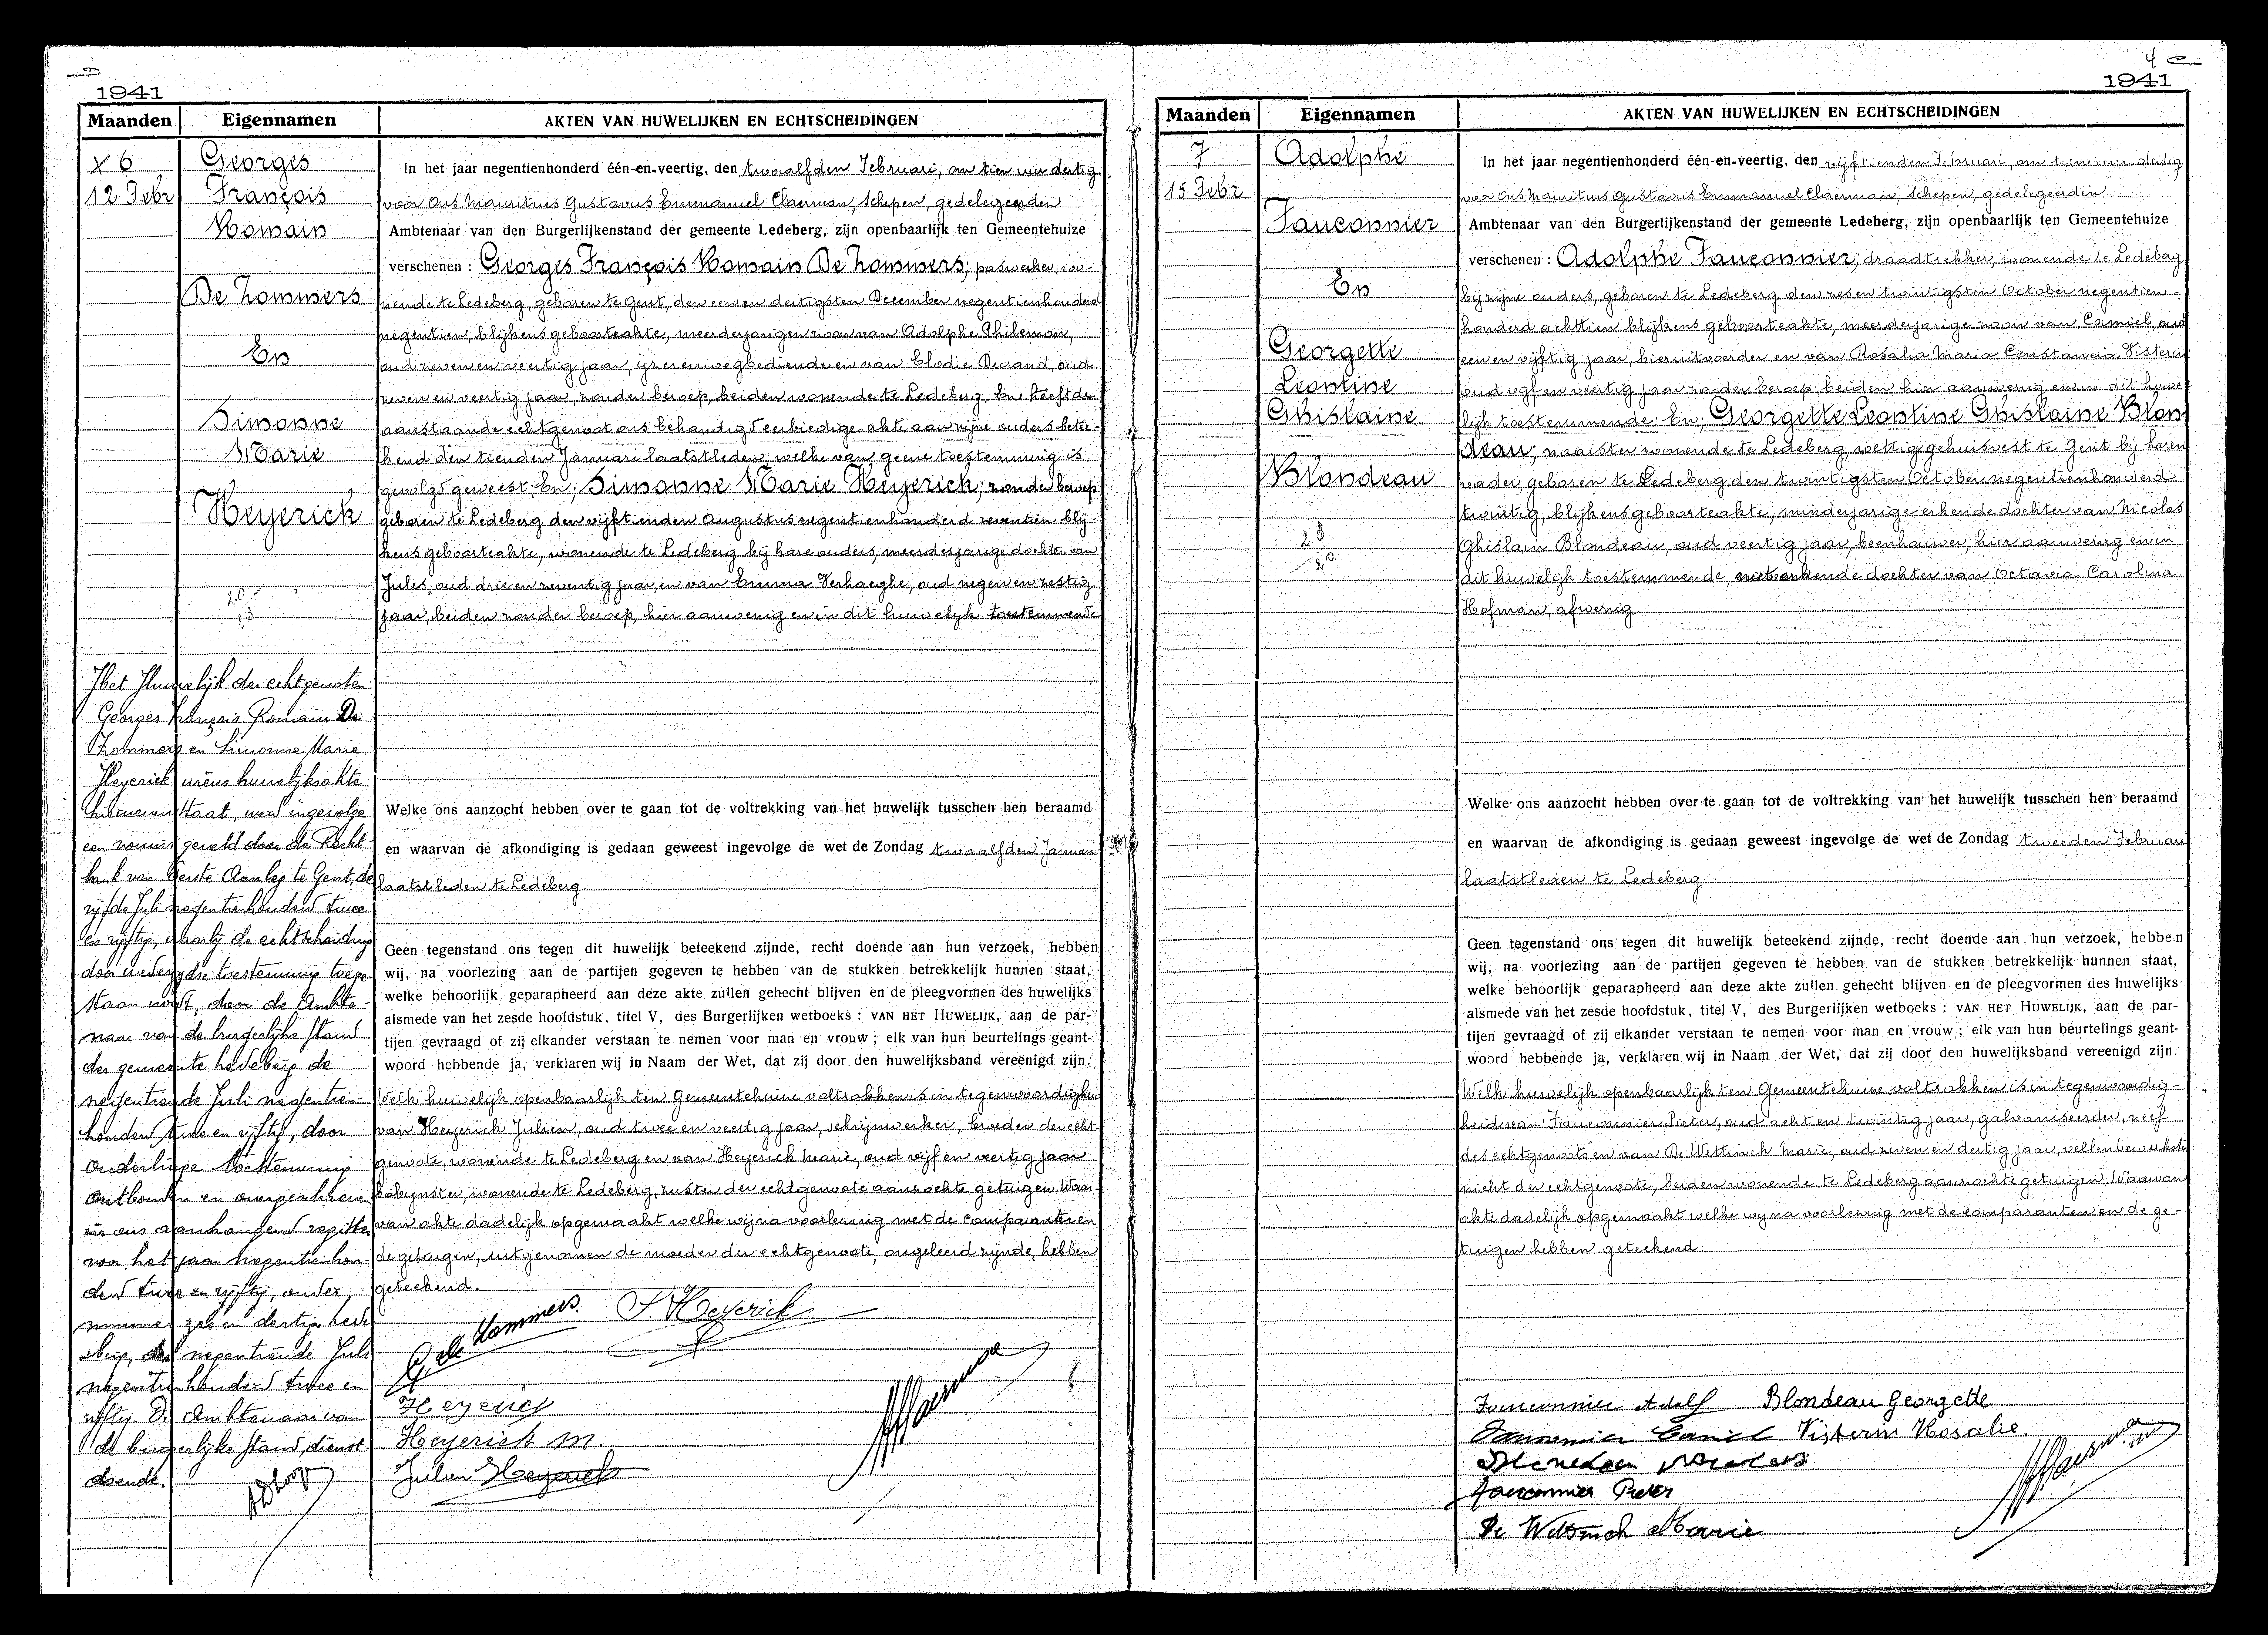 1941
Maanden Eigennamen AKTEN VAN HUWELIJKEN EN ECHTSCHEIDINGEN
x 6
12 Febr
Georges
François
Romain
De Zommers
En
Simonne
Marie
Heyerick
In het jaar negentienhonderd één-en-veertig, den twaalfden Februari, om tien uur dertig
voor Ons Mauritius Gustavus Emmanuel Claerman, Schepen, gedelegeerden
Ambtenaar van den Burgerlijkenstand der gemeente Ledeberg, zijn openbaarlijk ten Gemeentehuize
verschenen : Georges François Romain De Zommers; paswerker, wo-
nende te Ledeberg, geboren te Gent, den een en dertigsten December negentienhonderd
negentien, blijkens geboorteakte, meerderjarigen zoon van Adolphe Philemon,
oud zeven en veertig jaar, yzerenwegbediende en van Elodie Durand, oud
zeven en veertig jaar, zonder beroep, beiden wonende te Ledeberg. En heeft de
aanstaande echtgenoot ons behandigd eerbiedige akte aan zijne ouders betee-
kend den tienden Januari laatstleden, welke van geene toestemming is
gevolgd geweest; En; Simonne Marie Heyerick; zonder beroep
geboren te Ledeberg den vijftienden Augustus negentienhonderd zeventien blij-
kens geboorteakte, wonende te Ledeberg bij hare ouders, meerderjarige dochter van
Jules, oud drie en zeventig jaar, en van Emma Verhaeghe, oud negen en zestig
jaar, beiden zonder beroep, hier aanwezig en in dit huwelyk toestemmende
Welke ons aanzocht hebben over te gaan tot de voltrekking van het huwelijk tusschen hen beraamd
en waarvan de afkondiging is gedaan geweest ingevolge de wet de Zondag twaalfden Januari
laatstleden te Ledeberg
Geen tegenstand ons tegen dit huwelijk beteekend zijnde, recht doende aan hun verzoek, hebben
wij, na voorlezing aan de partijen gegeven te hebben van de stukken betrekkelijk hunnen staat,
welke behoorlijk geparapheerd aan deze akte zullen gehecht blijven en de pleegvormen des huwelijks
alsmede van het zesde hoofdstuk, titel V, des Burgerlijken wetboeks : VAN HET HUWELIJK, aan de par-
tijen gevraagd of zij elkander verstaan te nemen voor man en vrouw ; elk van hun beurtelings geant-
woord hebbende ja, verklaren wij in Naam der Wet, dat zij door den huwelijksband vereenigd zijn.
Welk huwelijk openbaarlijk ten Gemeentehuize voltrokken is in tegenwoordigheid
van Heyerick Julien, oud twee en veertig jaar, schrijnwerker, broeder der echt-
genoote, wonende te Ledeberg en van Heyerick Marie, oud vijf en veertig jaar
bobijnster, wonende te Ledeberg, zuster der echtgenoote aanzochte getuigen. Waar-
van akte dadelijk opgemaakt welke wij na voorlezing met de comparanten en
de getuigen, uitgenomen de moeder der echtgenoote, ongeleerd zijnde, hebben
geteekend.
G de Zommers. S. Heyerick
Heyerick
Heyerick M.
Julien Heyerick
Het Huwelijk der echtgenoten
Georges François Romain De
Zommers en Simonne Marie
Heyerick wiens huwelijksakte
hiernevens staat, werd ingevolge
een vonnis geveld door de Recht-
bank van Eerste Aanleg te Gent, de
vijfde Juli negentienhonderd twee
en vijftig, waarbij de echtscheiding
door wederzijdse toestemming toege-
staan werd, door de Ambte-
naar van de burgerlijke stand
der gemeente Ledeberg de
negentiende Juli negentien-
honderd twee en vijftig, door
onderlinge toestemming
ontbonden en overgeschreven
in ons aanhangend register
voor het jaar negentienhon-
derd twee en vijftig, onder
nummer zes en dertig. Lede
berg, de negentiende Juli
negentienhonderd twee en
vijftig. De Ambtenaar van
de burgerlijke stand, dienst-
doende.
4
1941
Maanden Eigennamen AKTEN VAN HUWELIJKEN EN ECHTSCHEIDINGEN
7
15 Febr
Adolphe
Fauconnier
En
Georgette
Leontine
Ghislaine
Blondeau
23
20
In het jaar negentienhonderd één-en-veertig, den vijftienden Februari, om tien uur dertig
voor Ons Mauritius Gustavus Emmanuel Claerman, Schepen, gedelegeerden
Ambtenaar van den Burgerlijkenstand der gemeente Ledeberg, zijn openbaarlijk ten Gemeentehuize
verschenen : Adolphe Fauconnier; draadtrekker, wonende te Ledeberg
bij zijne ouders, geboren te Ledeberg den zes en twintigsten October negentien-
honderd achttien blijkens geboorteakte, meerderjarige zoon van Camiel, oud
een en vijftig jaar, bieruitvoerder en van Rosalia Maria Constancia Visterin
oud vyf en veertig jaar zonder beroep, beiden hier aanwezig en in dit huwe-
lijk toestemmende: En; Georgette Leontine Ghislaine Blon
deau; naaister wonende te Ledeberg, wettig gehuisvest te Gent bij haren
vader, geboren te Ledeberg den twintigsten October negentienhonderd
twintig, blijkens geboorteakte, minderjarige erkende dochter van Nicolas
Ghislain Blondeau, oud veertig jaar, beenhouwer, hier aanwezig en in
dit huwelijk toestemmende, niet erkende dochter van Octavia Carolina
Hofman, afwezig
Welke ons aanzocht hebben over te gaan tot de voltrekking van het huwelijk tusschen hen beraamd
en waarvan de afkondiging is gedaan geweest ingevolge de wet de Zondag tweeden Februari
laatstleden te Ledeberg
Geen tegenstand ons tegen dit huwelijk beteekend zijnde, recht doende aan hun verzoek, hebben
wij, na voorlezing aan de partijen gegeven te hebben van de stukken betrekkelijk hunnen staat,
welke behoorlijk geparapheerd aan deze akte zullen gehecht blijven en de pleegvormen des huwelijks
alsmede van het zesde hoofdstuk, titel V, des Burgerlijken wetboeks : VAN HET HUWELIJK, aan de par-
tijen gevraagd of zij elkander verstaan te nemen voor man en vrouw ; elk van hun beurtelings geant-
woord hebbende ja, verklaren wij in Naam der Wet, dat zij door den huwelijksband vereenigd zijn.
Welk huwelijk openbaarlijk ten Gemeentehuize voltrokken is in tegenwoordig-
heid van Fauconnier Pieter, oud acht en twintig jaar, galvaniseerder, neef
des echtgenoots en van De Wettinck Marie, oud zeven en dertig jaar, vellenbewerkster
nicht der echtgenoote, beiden wonende te Ledeberg aanzochte getuigen. Waarvan
akte dadelijk opgemaakt welke wy na voorlezing met de comparanten en de ge-
tuigen hebben geteekend.
Fauconnier Adolf Blondeau Georgette
Fauconnier Camiel Visterin Rosalie.
Blondeau Nicolas
Fauconnier Pieter
De Wettinck Marie